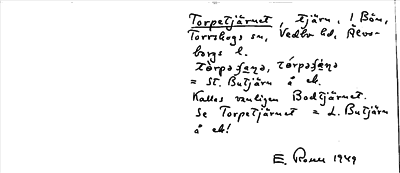 Torpetjärnet, tjärn, i Bön,
Torrskogs sn, Vedbo hd, Älvs-
borgs l.
= St. Butjärn å ek.
Kallas vanligen Bodtjärnet.
Se Torpetjärnet = L. Butjärn
å ek!
E. Rosell 1949